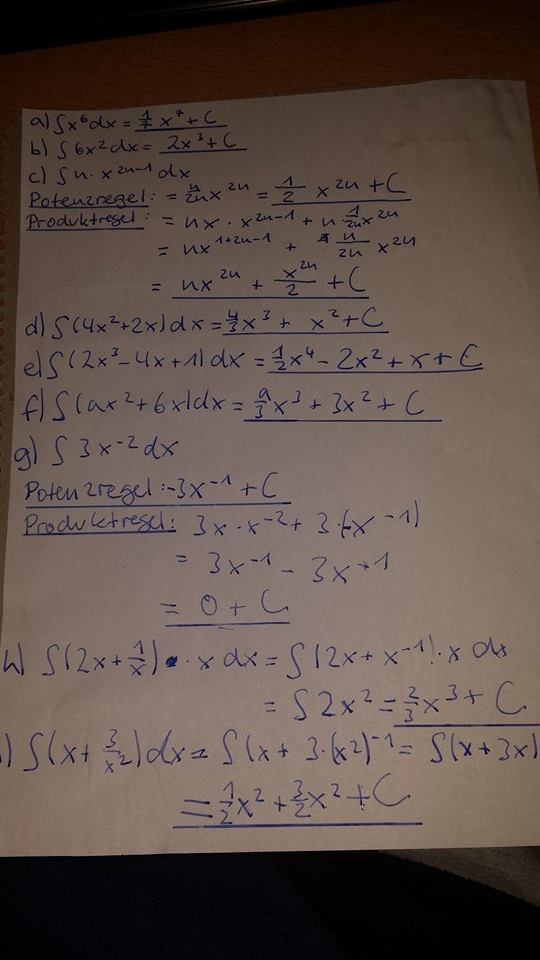 a) ∫x⁶dx = 1/7 x⁷ + C
b) ∫6x²dx = 2x³ + C
c) ∫n·x²ⁿ⁻¹ dx
Potenzregel: = n/2n x²ⁿ = 1/2 x²ⁿ + C
Produktregel: = nx · x²ⁿ⁻¹ + n · 1/2n x²ⁿ
= nx¹⁺²ⁿ⁻¹ + n/2n x²ⁿ
= nx²ⁿ + x²ⁿ/2 + C
d) ∫(4x²+2x)dx = 4/3 x³ + x² + C
e) ∫(2x³ - 4x + 1)dx = 1/2 x⁴ - 2x² + x + C
f) ∫(ax² + 6x)dx = a/3 x³ + 3x² + C
g) ∫ 3x⁻² dx
Potenzregel: -3x⁻¹ + C
Produktregel: 3x · x⁻² + 3·(-x⁻¹)
= 3x⁻¹ - 3x⁺¹
= 0 + C
h) ∫(2x + 1/x) · x dx = ∫(2x + x⁻¹) · x dx
= ∫2x² = 2/3 x³ + C
) ∫(x + 3/x²)dx = ∫(x + 3·(x²)⁻¹ = ∫(x + 3x)
= 1/2 x² + 3/2 x² + C